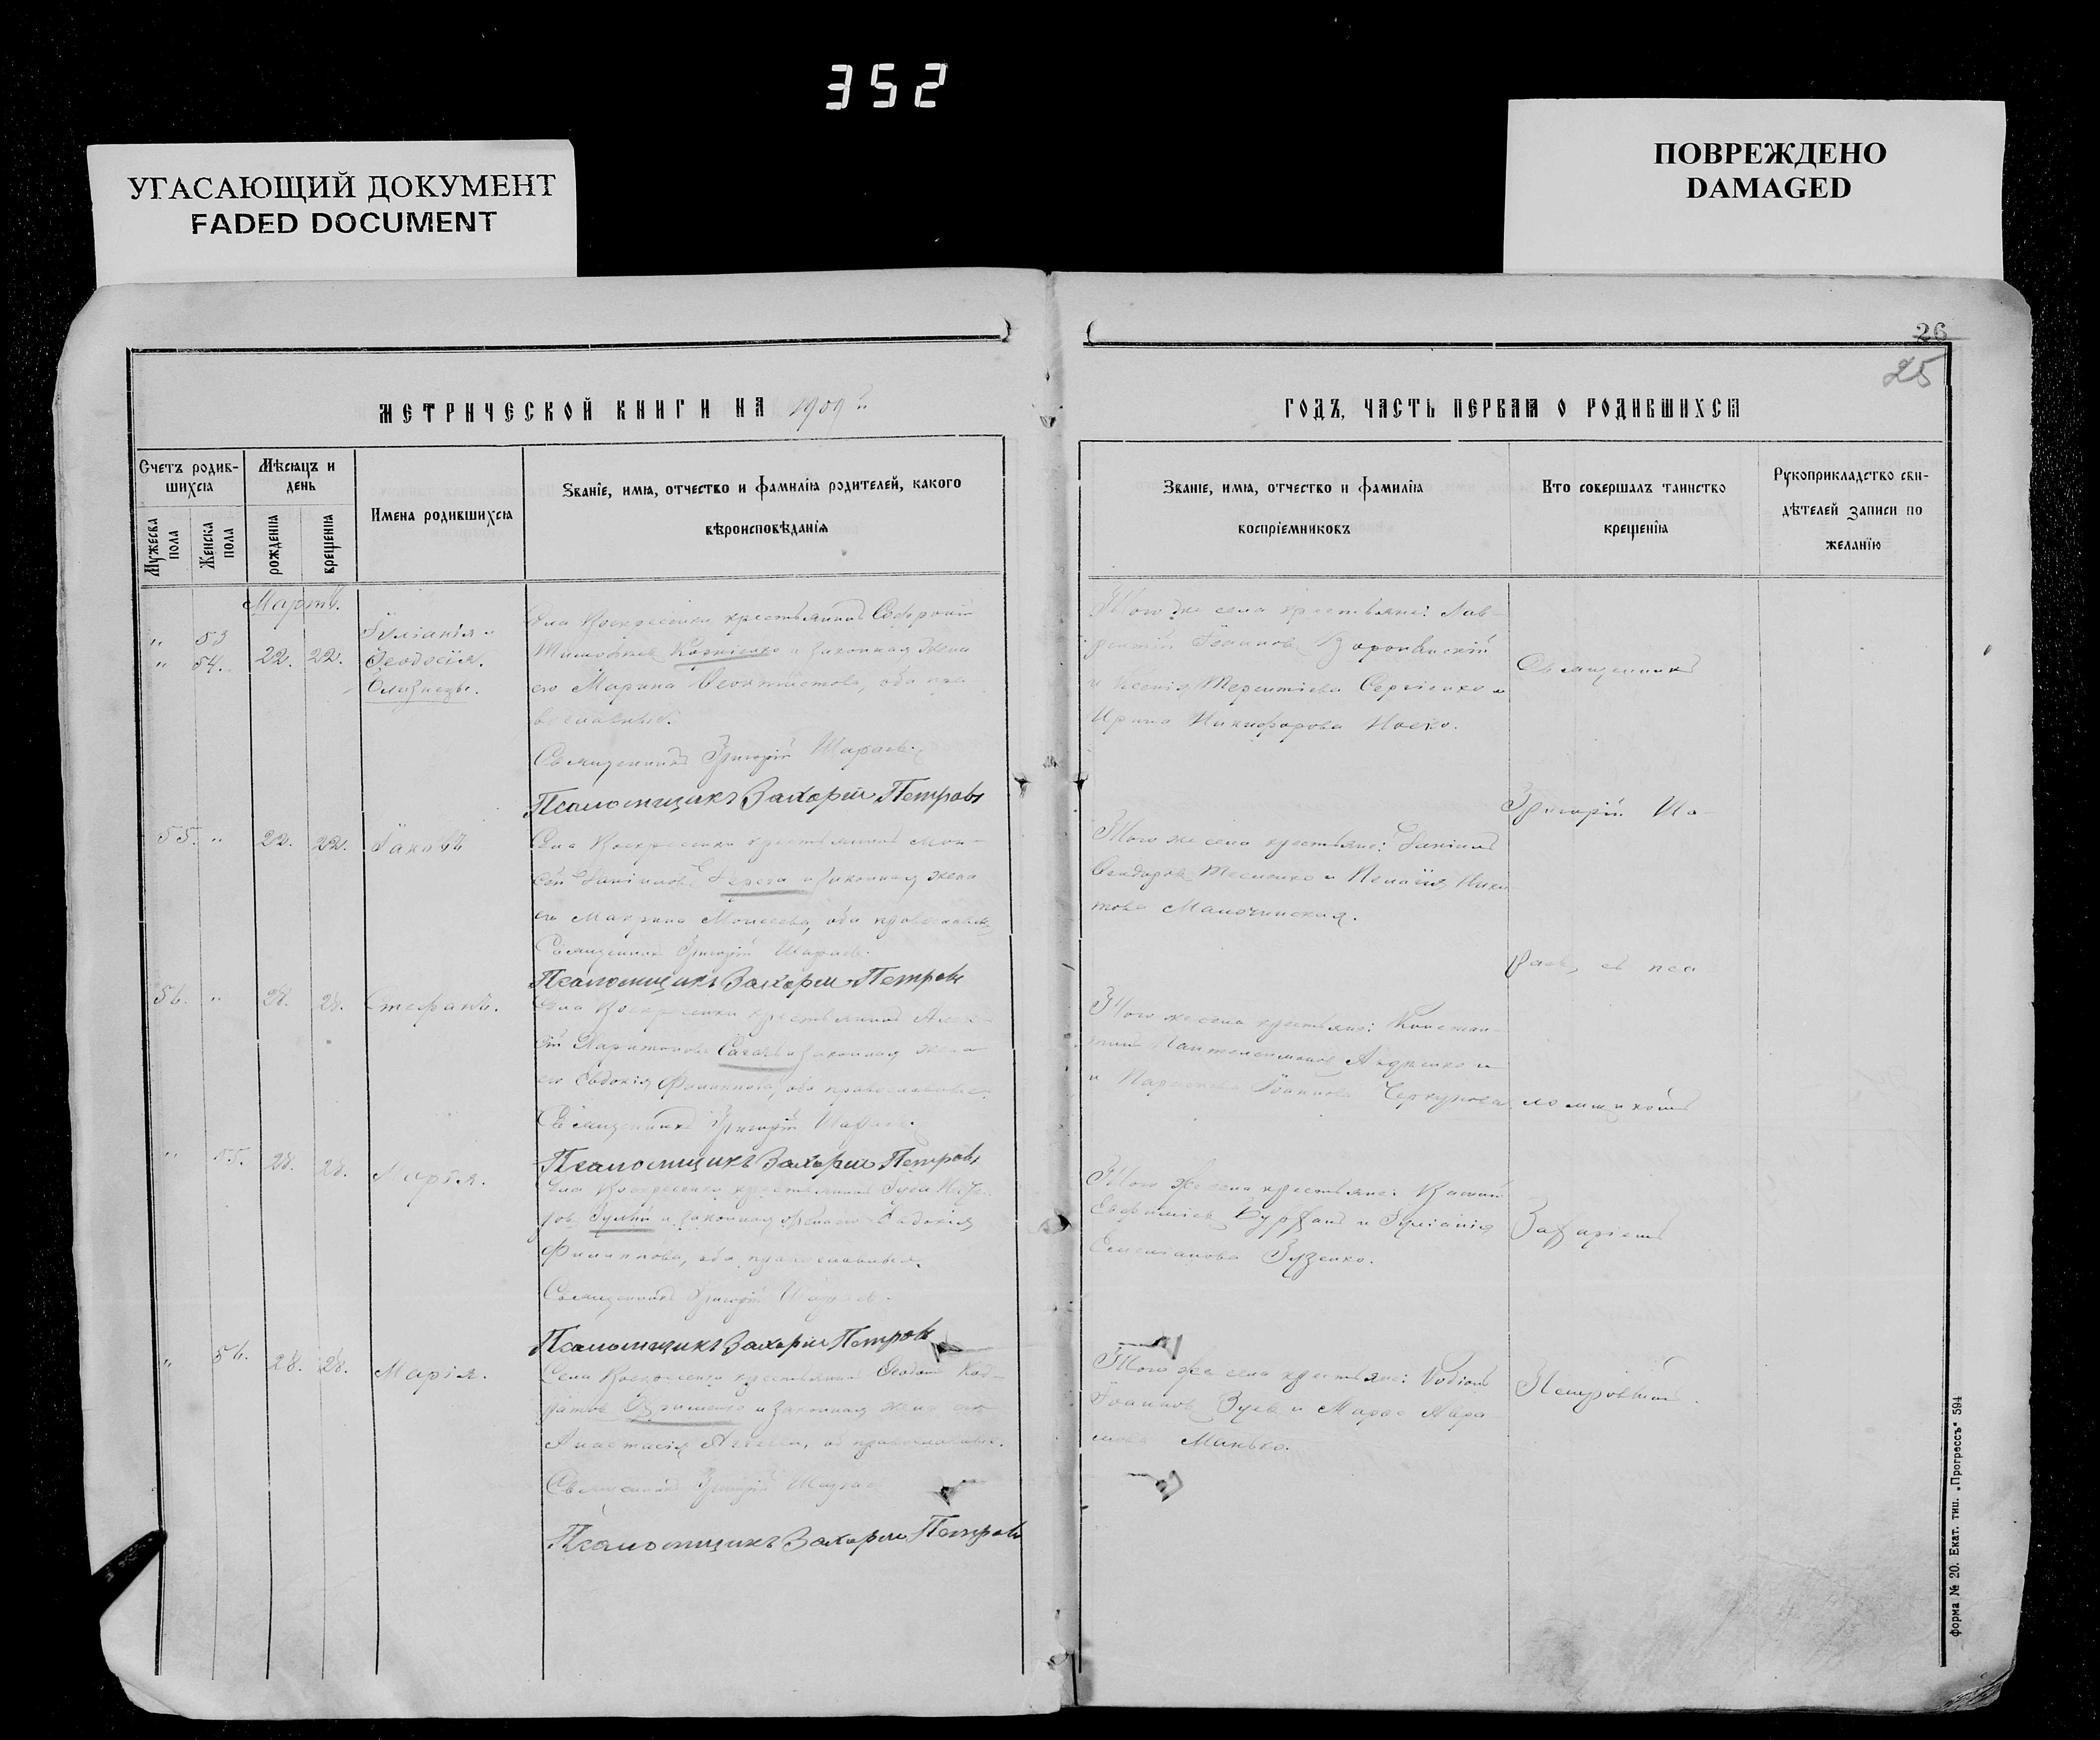 352
УГАСАЮЩИЙ ДОКУМЕНТ
FADED DOCUMENT
ПОВРЕЖДЕНО
DAMAGED
26
25
МЕТРИЧЕСКОЙ КНИГИ НА 1909й
ГОДЪ, ЧАСТЬ ПЕРВАЯ О РОДИВШИХСЯ
Счетъ родив-
шихся
Мужеска пола
Женска пола
Мѣсяцъ и
день
рожденія
крещенія
Имена родившихся
Званіе, имя, отчество и фамилія родителей, какого
вѣроисповѣданія
Званіе, имя, отчество и фамилія
воспріемниковъ
Кто совершалъ таинство
крещенія
Рукоприкладство сви-
дѣтелей записи по
желанію
Мартъ.
„ 53
„ 54. 22. 22.
Іуліанія и
Ѳеодосія.
Близнецы.
Села Воскресенки крестьянинъ Софроній
Тимофеевъ и законная жена
его Марина Ѳеоктистова, оба пра-
вославные.
Священникъ Григорій Шараевъ.
Псаломщикъ Захарій Петровъ
Того же села крестьяне: Лав-
рентій Іоанновъ
и Ксенія Терентіева Сергіенко и
Ирина Никифорова Носко.
55. „ 22. 22. Іаковъ
Села Воскресенки крестьянинъ Мои-
сей Даніиловъ и законная жена
его Макрина Моисеева, оба православные
Священникъ Григорій Шараевъ.
Псаломщикъ Захарій Петровъ
Того же села крестьяне: Даніилъ
Ѳеодоровъ и Пелагія Ники-
това
56. „ 28. 28. Стефанъ.
Села Воскресенки крестьянинъ Алек-
сѣй Харитоновъ и законная жена
его Евдокія Филиппова, оба православные.
Священникъ Григорій Шараевъ.
Псаломщикъ Захарій Петровъ
Того же села крестьяне: Констан-
тинъ Пантелеимоновъ Андренко и
Іоаннова
„ 55. 28. 28. Марія.
Села Воскресенки крестьянинъ
и законная жена его Евдокія
Филиппова, оба православные.
Священникъ Григорій Шараевъ.
Псаломщикъ Захарій Петровъ
Того же села крестьяне:
Евфиміевъ и Іуліанія
Емеліанова Зузенко.
„ 56. 28. 28. Марія.
Села Воскресенки крестьянинъ Ѳеодотъ Код-
ратовъ и законная жена его
Анастасія, оба православные.
Священникъ Григорій Шараевъ
Псаломщикъ Захарій Петровъ
Того же села крестьяне: Родіонъ
Іоанновъ Зуевъ и Марфа Авра-
мова Манько.
Священникъ
Григорій Ша-
раевъ, съ пса-
ломщикомъ
Захаріемъ
Петровымъ.
форма № 20. Екат. тип. „Прогрессъ“ 594